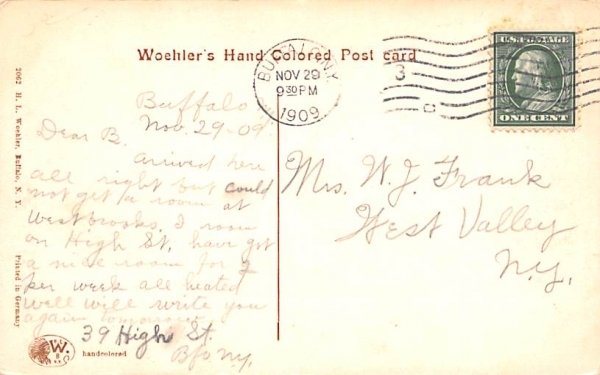 Woehler's Hand Colored Post card
BUFFALO, N.Y.
NOV 29
9 30 PM
1909
3
U.S. POSTAGE
ONE CENT
2062 H. L. Woehler, Buffalo, N. Y.
Printed in Germany
Buffalo
Nov. 29-09
Dear B.
arrived here
all right but could
not get a room at
Westbrooks. I room
on High St, have got
a nice room for 2
per week all heated
well will write you
again tomorrow
39 High St.
Bfo NY,
Mrs. W. J. Frank
West Valley
N.Y.
W.
handcolored